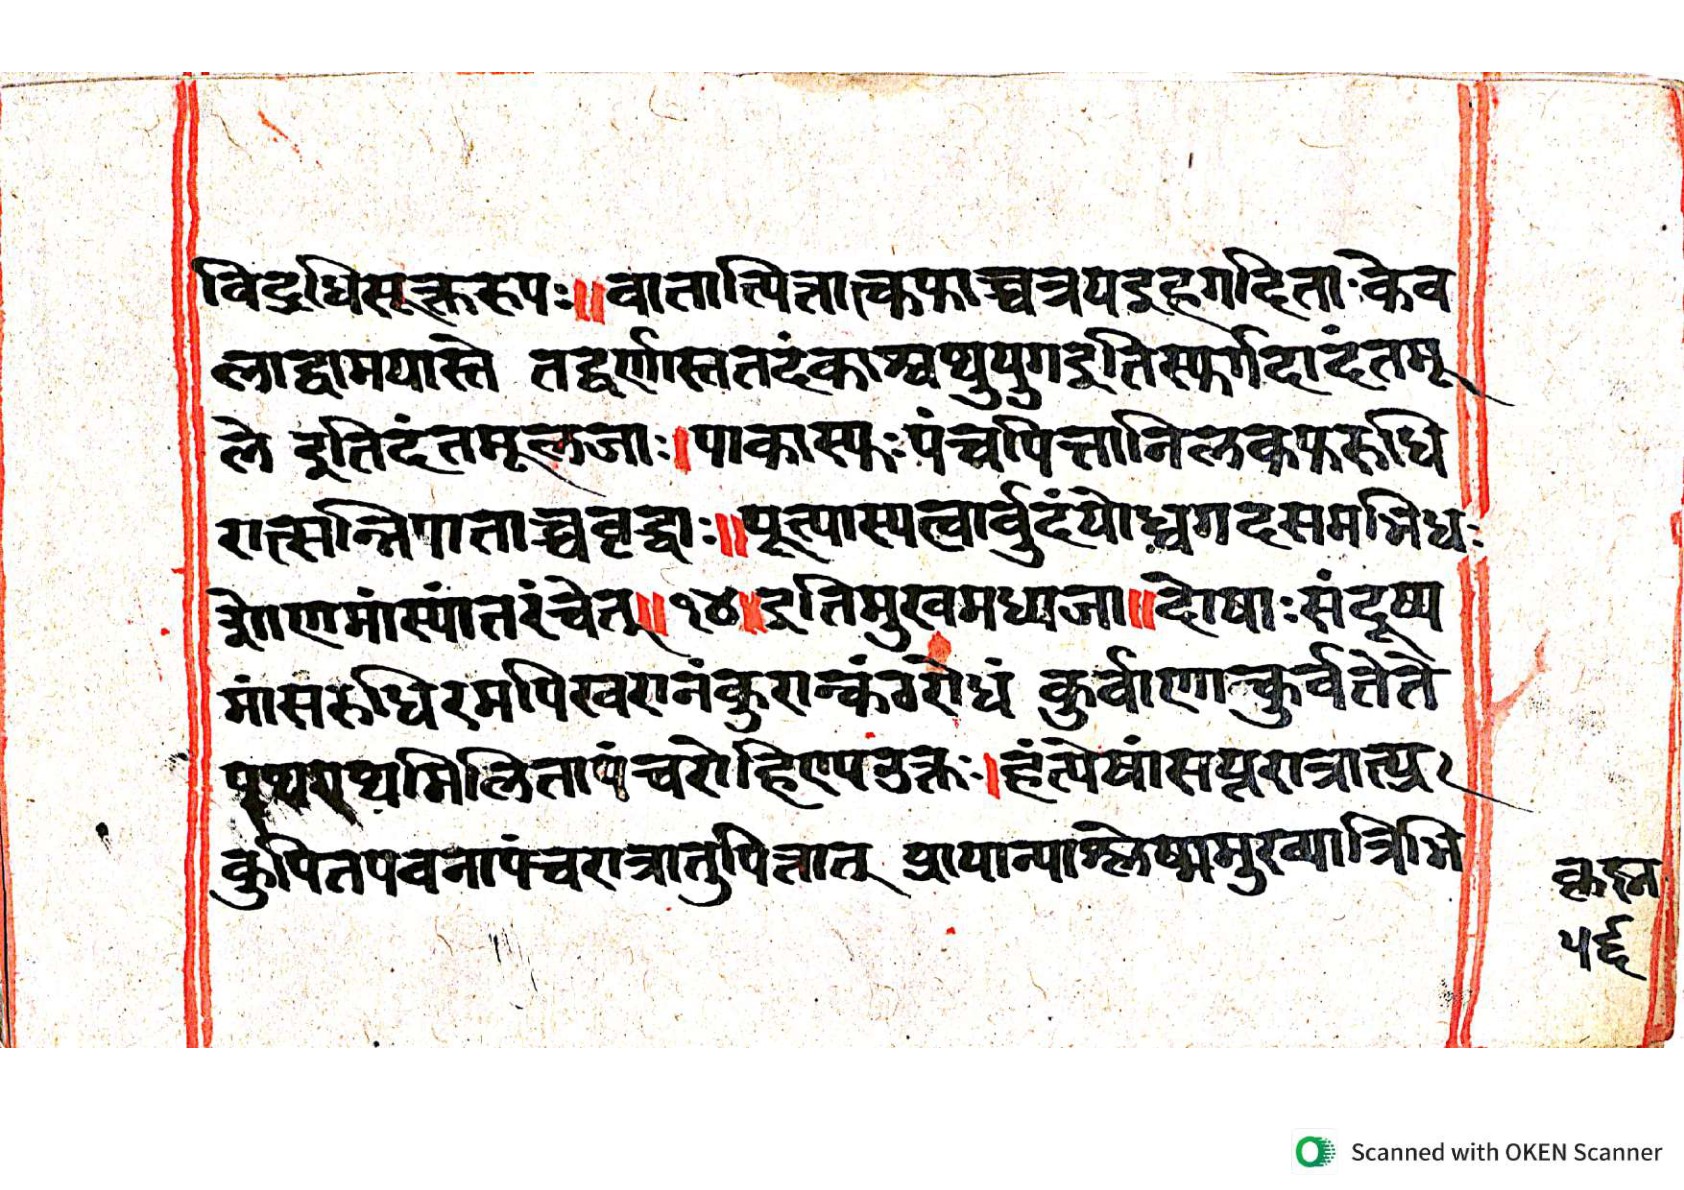 विद्रधिसूक्तरूपः॥वातात्पित्तात्कफाच्चत्रयइहगदिताःकेव
लाद्वामयास्ते तद्वर्णास्ततदंकाश्चथुयुगइतिस्फर्गदादंतमू
ले इतिदंतमूलजाः।पाकास्फःपंचपित्तानिलकफरुधि
रात्सन्निपाताच्चवृद्धाः॥पूत्यास्यत्वार्वुदंयोर्ध्वगदसमभिधः
मांस्यांतरंचेत्॥१७॥इतिमुखमध्यजा॥दोषाःसंदूष्य
मांसरुधिरमपिखरानंकुरान्कंठरोधं कुर्वाणान्कुर्वतेते
मिलितापंचरोहिण्यउक्तः।हंत्येषांसप्तरात्रात्प्र
कुपितपवनापंचरात्रातुपित्तात् प्रायान्याश्लेष्ममुख्यात्रिभि
Scanned with OKEN Scanner